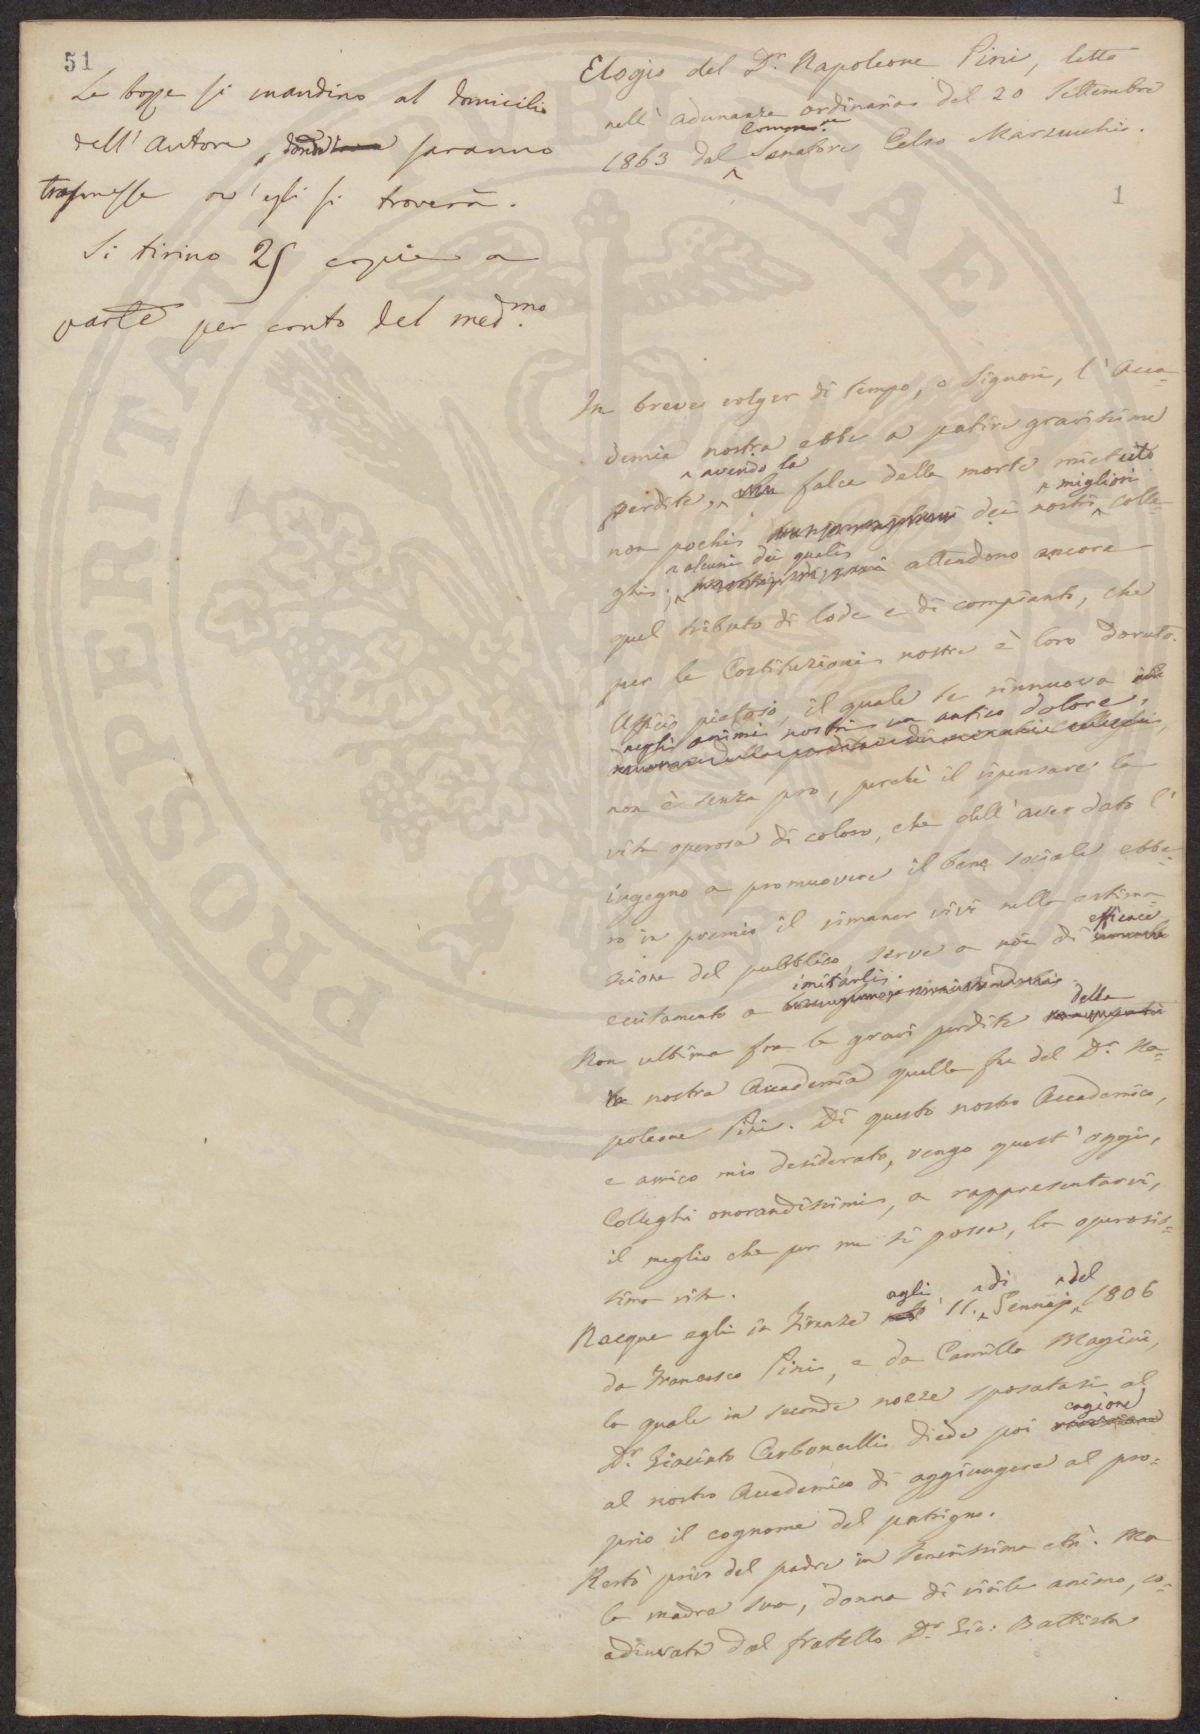 51
Le bozze si mandino al domicilio
dell' Autore, donde saranno
trasmesse ov' egli si troverà.
Si tirino 25 copie a
parte per conto del med.mo
Elogio del D.r Napoleone Pini, letto
nell' adunanza ordinaria del 20 Settembre
1863 dal Comm.re Senatore Celso Marzucchi.
1
In breve volger di tempo, o Signori, l' Acca=
demia nostra ebbe a patire gravissime
perdite, avendo la falce della morte mietuto
non pochi dei nostri migliori colle=
ghi; alcuni dei quali attendono ancora
quel tributo di lode e di compianto, che
per le Costituzioni nostre è loro dovuto.
Ufficio pietoso, il quale se rinnuova
negli animi nostri un antico dolore,
non è senza pro, perchè il ripensare la
vita operosa di coloro, che dell' aver dato l'
ingegno a promuovere il bene sociale ebbe=
ro in premio il rimaner vivi nella estima=
zione del pubblico, serve a noi di efficace
eccitamento a imitarli.
Non ultima fra le gravi perdite della
nostra Accademia quella fu del D.r Na=
poleone Pini. Di questo nostro Accademico,
e amico mio desiderato, vengo quest' oggi,
Colleghi onorandissimi, a rappresentarvi,
il meglio che per me si possa, la operosis=
sima vita.
Nacque egli in Firenze agli 11. di Gennajo del 1806
da Francesco Pini, e da Camilla Magini,
la quale in seconde nozze sposatasi al
D.r Giacinto Carboncelli diede poi cagione
al nostro Accademico di aggiungere al pro=
prio il cognome del patrigno.
Restò privo del padre in tenerissima età. Ma
la madre sua, donna di virile animo, co=
adiuvata dal fratello D.r Gio: Battista
PROSPERITATI PUBLICAE